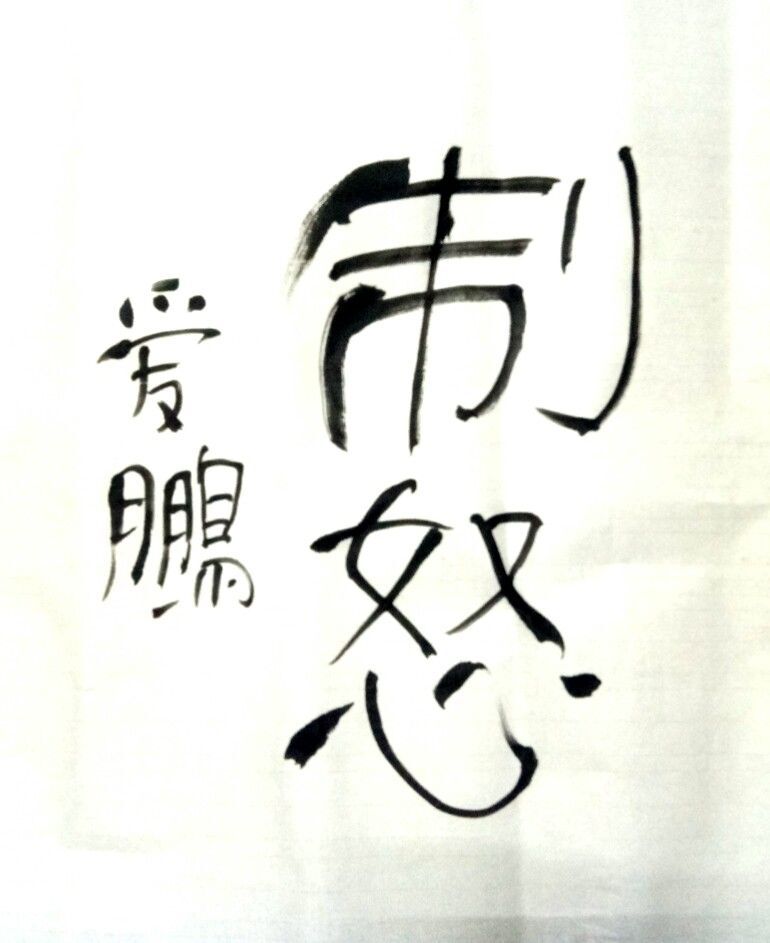 制怒
爱鵬